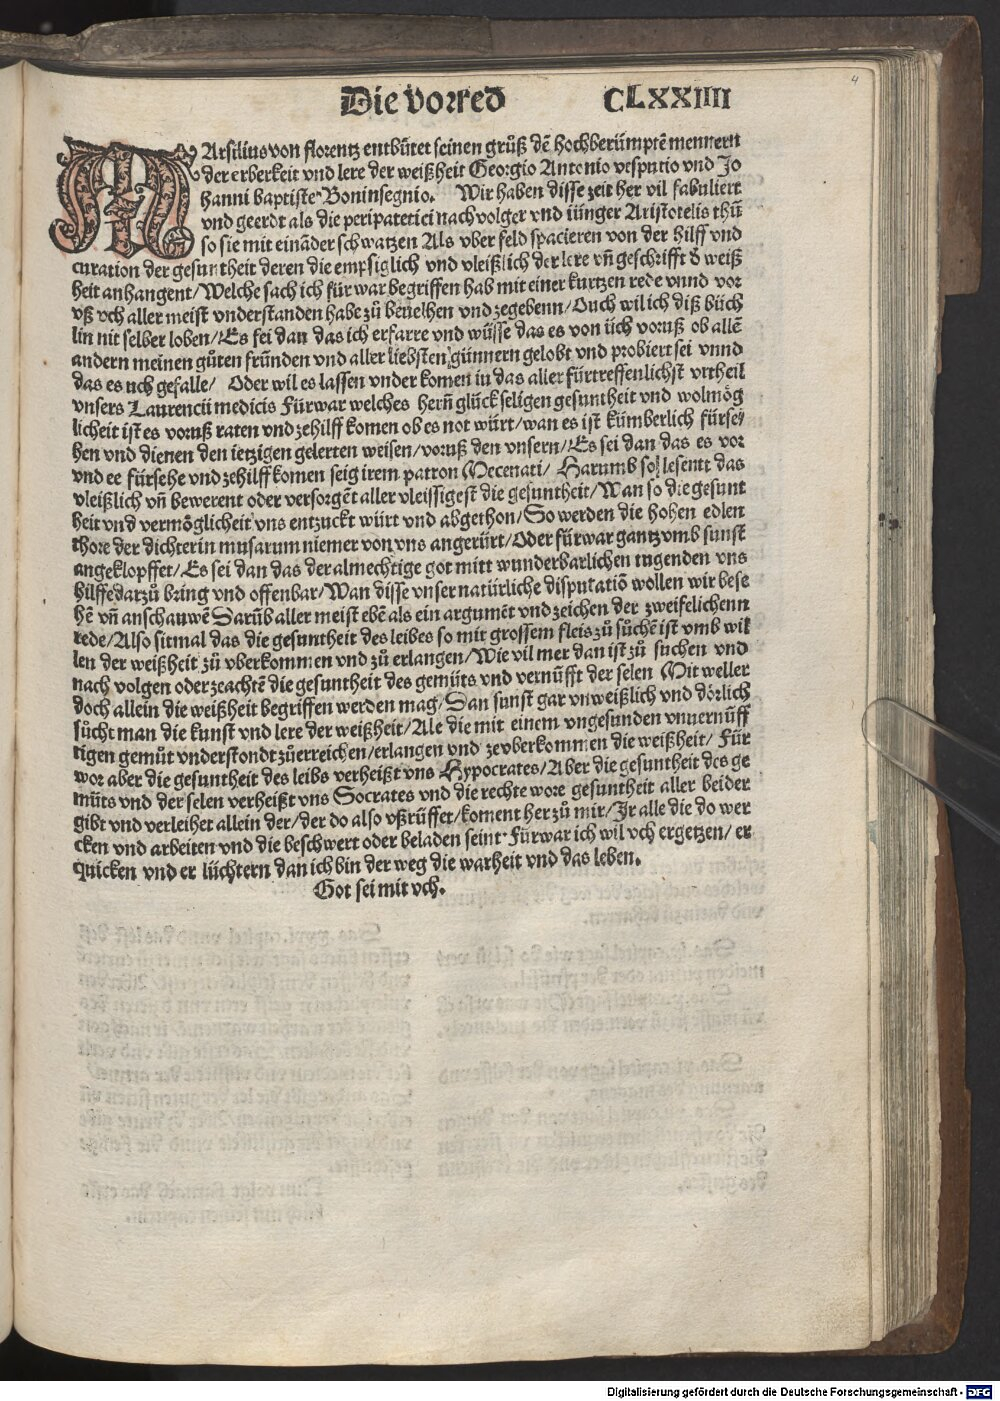 4
Die vorred CLXXIIII
MArsilius von florentz entbütet seinen grůß dē hochberümptē mennern
der erberkeit vnd lere der weißheit Georgio Antonio vesputio vnd Jo
hanni baptiste Boninsegnio. Wir haben disse zeit her vil fabuliert
vnd geerdt als die peripatetici nachvolger vnd iünger Aristotelis thů
so sie mit eināder schwatzen Als vber feld spacieren von der hilff vnd
curation der gesuntheit deren die empsiglich vnd vleißlich der lere vñ geschrifft d weiß
heit anhangent/Welche sach ich für war begriffen hab mit einer kurtzen rede vnnd vor
vß vch aller meist vnderstanden habe zů beuelhen vnd zegebenn/Ouch wil ich diß büch
lin nit selber loben/Es sei dan das ich erfarre vnd wüsse das es von üch voruß ob allē
andern meinen gůten fründen vnd aller liebsten günnern gelobt vnd probiert sei vnnd
das es uch gefalle/ Oder wil es lassen vnder komen in das aller fürtreffenlichst vrtheil
vnsers Laurencii medicis Fürwar welches herñ glückseligen gesuntheit vnd wolmög
licheit ist es voruß raten vnd zehilff komen ob es not würt/wan es ist kümberlich fürse/
hen vnd dienen den ietzigen gelerten weisen/voruß den vnsern/Es sei dan das es vor
vnd ee fürsehe vnd zehilff komen seig irem patron Mecenati/ Harumb so lesentt das
vleißlich vñ bewerent oder versorgēt aller vleissigest die gesuntheit/Wan so die gesunt
heit vnd vermöglicheit vns entzuckt würt vnd abgethon/So werden die hohen edlen
thore der dichterin musarum niemer von vns angerürt/Oder fürwar gantz vmb sunst
angeklopffet/Es sei dan das der almechtige got mitt wunderbarlichen tugenden vns
hilffe darzů bring vnd offenbar/Wan disse vnser natürliche disputatiō wollen wir bese
hē vñ anschauwē Darūb aller meist ebē als ein argumēt vnd zeichen der zweifelichenn
rede/Also sitmal das die gesuntheit des leibes so mit grossem fleis zů sůchē ist vmb wil
len der weißheit zů vberkommen vnd zů erlangen/Wie vil mer dan ist zů suchen vnd
nach volgen oder zeachtē die gesuntheit des gemüts vnd vernüfft der selen Mit weller
doch allein die weißheit begriffen werden mag/Dan sunst gar vnweißlich vnd dörlich
sůcht man die kunst vnd lere der weißheit/Ale die mit einem vngesunden vnuernüff
tigen gemůt vnderstondt zůerreichen/erlangen vnd zevberkommen die weißheit/ Für
wor aber die gesuntheit des leibs verheißt vns Hypocrates/Aber die gesuntheit des ge
müts vnd der selen verheißt vns Socrates vnd die rechte wore gesuntheit aller beider
gibt vnd verleihet allein der/der do also vßrüffet/koment her zů mir/Ir alle die do wer
cken vnd arbeiten vnd die beschwert oder beladen seint Fürwar ich wil vch ergetzen/ er
quicken vnd er lüchtern dan ich bin der weg die warheit vnd das leben.
Got sei mit vch.
Digitalisierung gefördert durch die Deutsche Forschungsgemeinschaft - DFG